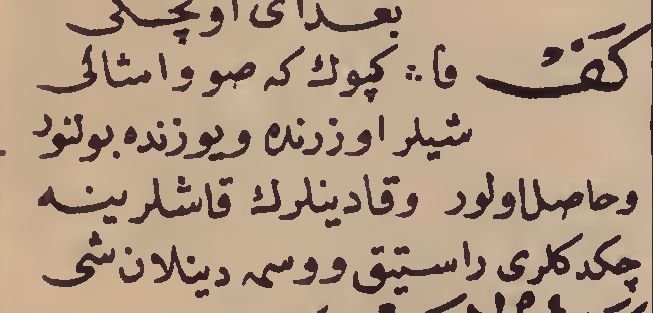 بعدای اوچکی
كَفْ فا : كپوك كه صو و امثالی
شیلر اوزرنده و یوزنده بولنور
و حاصل اولور و قادینلرك قاشلرینه
چكدكلری راستیق و وسمه دینلان شی